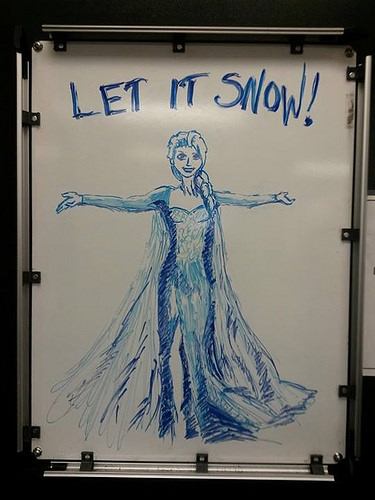 LET IT SNOW!